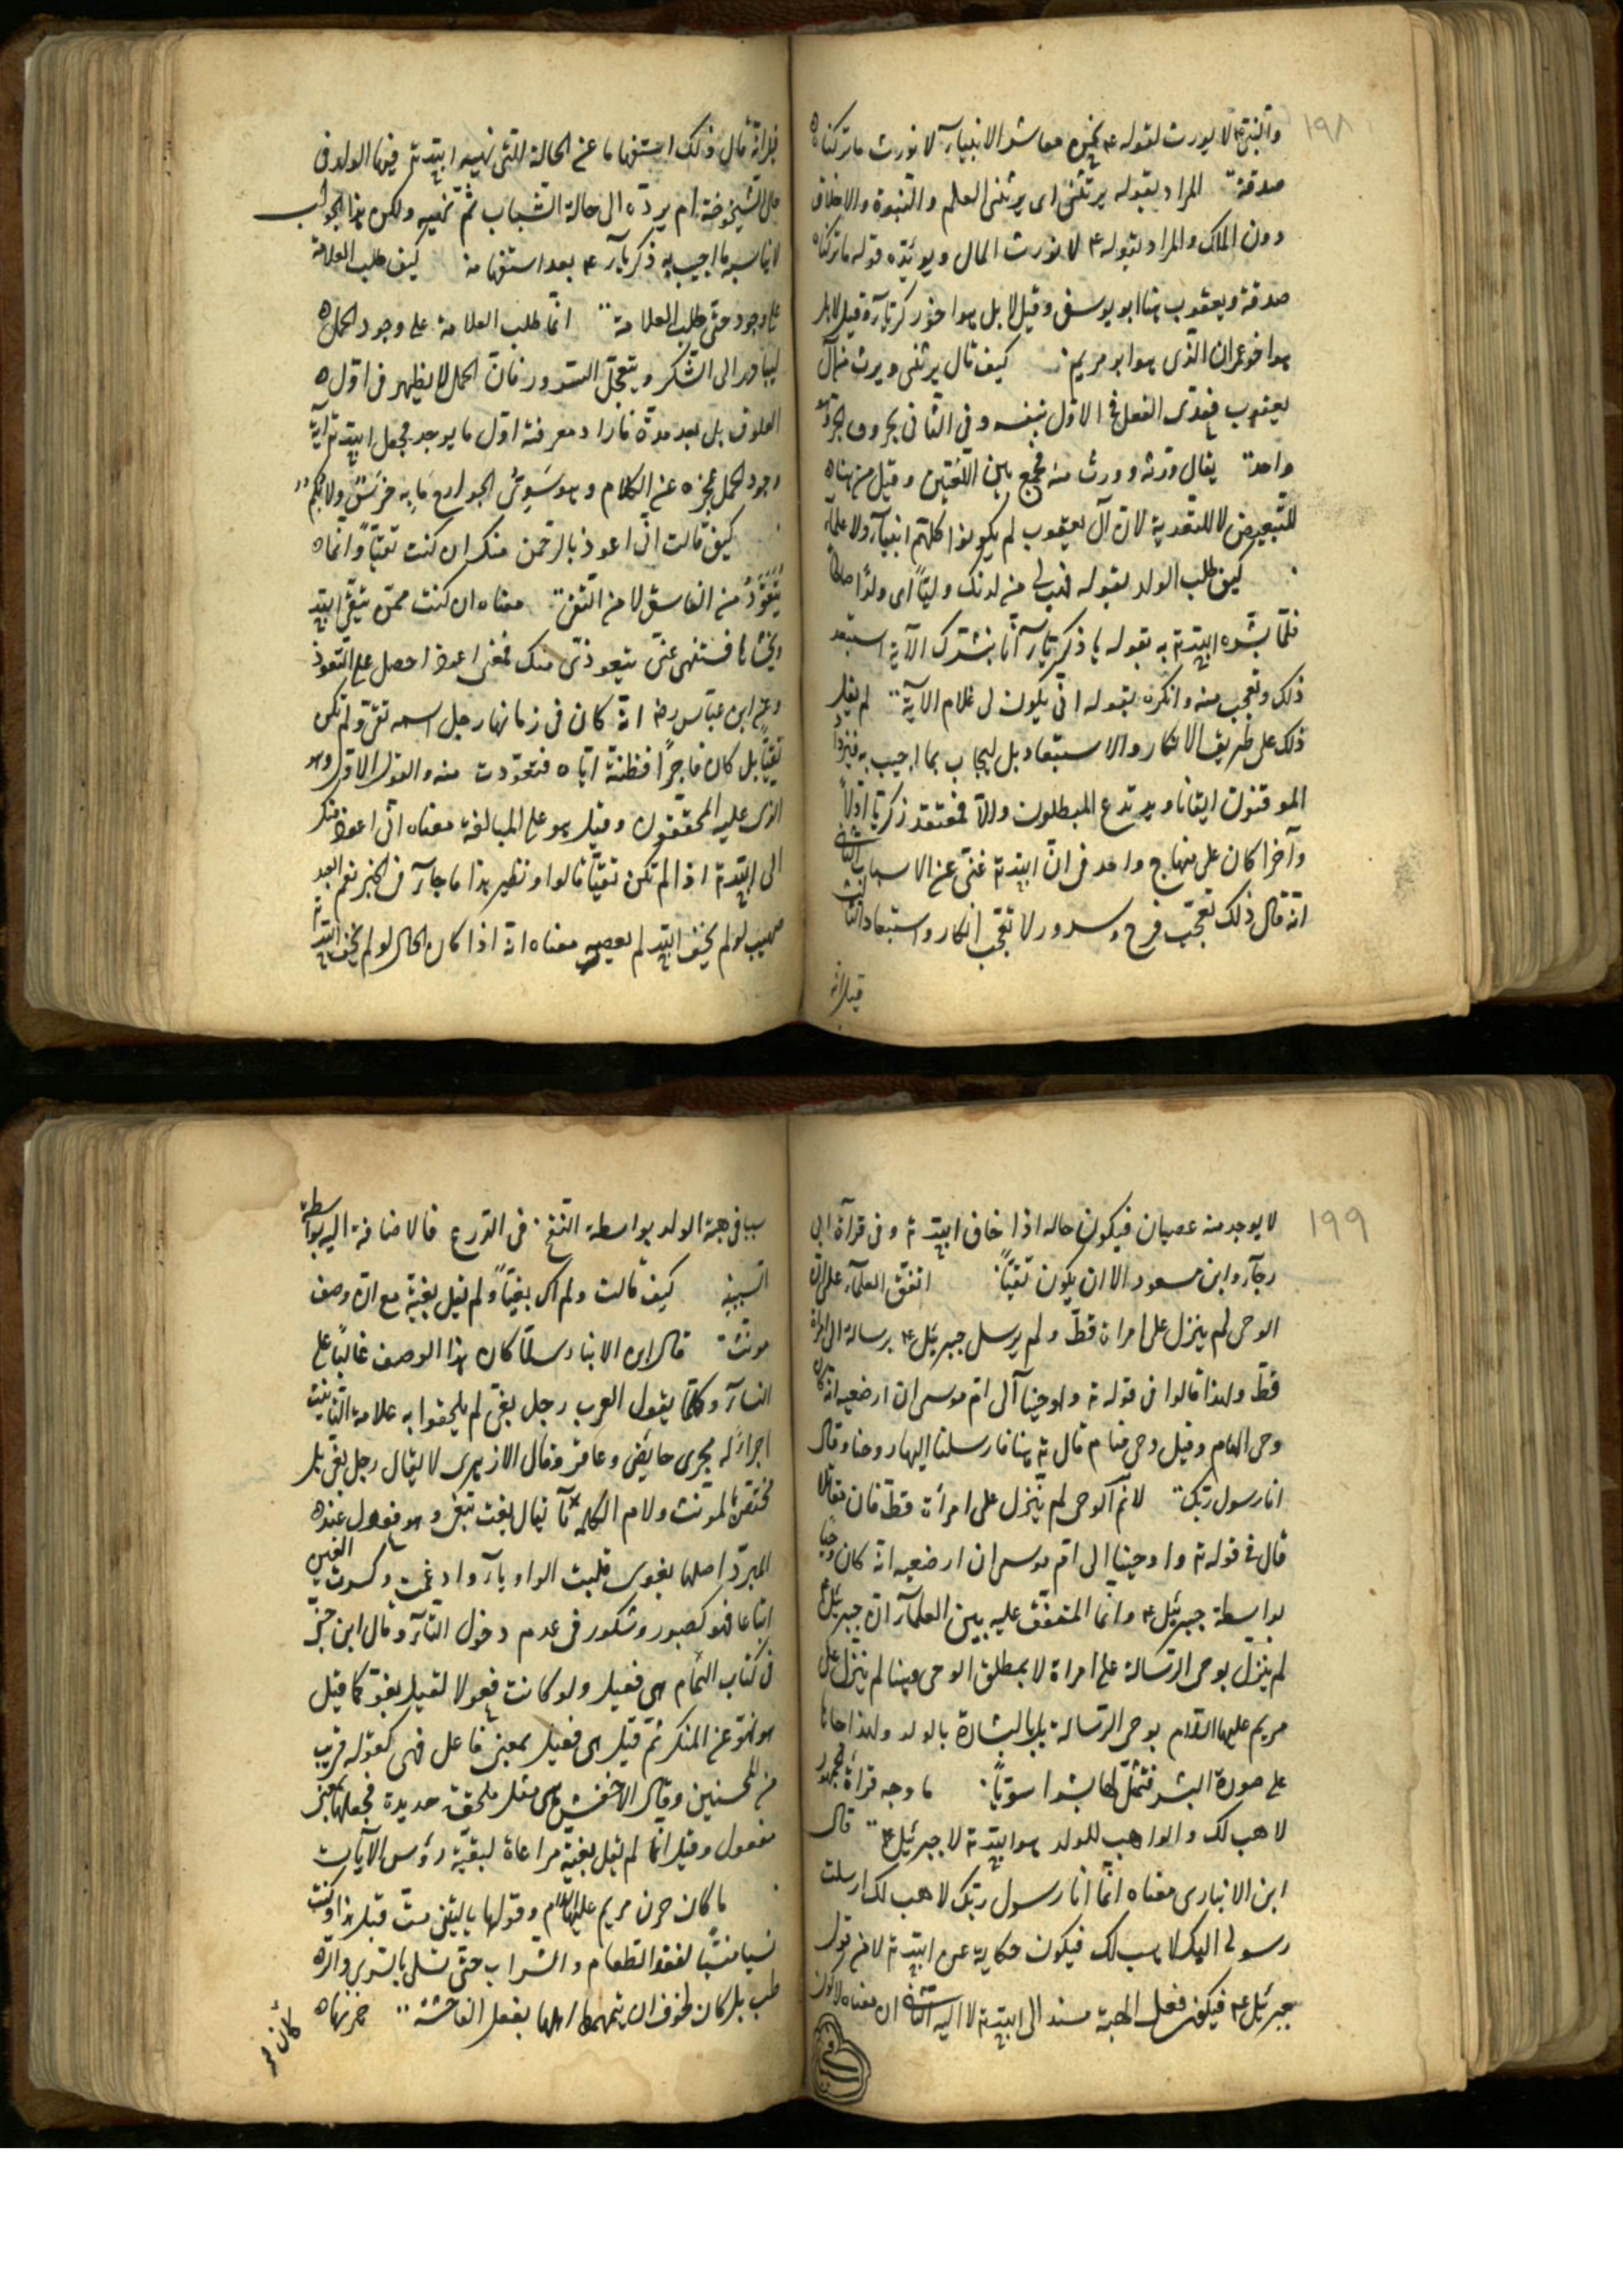 ١٩٨
والنبى ع م لا يورث لقوله ع م نحن معاشر الانبيآء لا نورث ما تركناه
صدقة المراد بقوله يرثنى اى يرثنى العلم والنبوة والاخلاق
دون الملك والمراد بقوله ع م لا نورث المال ويؤيده قوله ما تركناه
صدقة ويعقوب هنا ابو يوسف وقيل لا بل هو اخو زكريآء وقيل لا بل
هو اخو عمران الذى هو ابو مريم كيف قال يرثنى ويرث من آل
يعقوب فعدى الفعل فى الاول بنفسه وفى الثانى بحرف الجر وهو
واحد يقال ورثه وورث منه فجمع بين اللغتين وقيل من هناه
للتبعيض لا للتعدية لان آل يعقوب لم يكونوا كلهم انبيآء ولا علمآء
كيف طلب الولد بقوله فهب لى من لدنك وليّاً اى ولدًا صالحًا
فلمّا بشره الله تع به بقوله يا زكريآء انّا نبشرك الآية استبعد
ذلك وتعجب منه وانكره بقوله انّى يكون لى غلام الآية لم يقل
ذلك على طريق الانكار والاستبعاد بل ليجاب بما اجيب به فيزداد
الموقنون ايقانا ويرتدع المبطلون والّا فمعتقد زكريا اولاً
وآخرا كان على منهاج واحد فى انّ الله تع غنىّ عن الاسباب الثانى
انه قال ذلك تعجّب فرح وسرور لا تعجّب انكار واستبعاد الثالث
قيل انه
قيل انّه قال ذلك استفهاما عن الحالة التى يهبه الله تع فيها الولد فى
حال الشيخوخة ام يردّه الى حالة الشباب ثمّ يهبه ولكن هذا الجواب
لا يناسبه ما اجيب به زكريآء ع م بعد استفهامه كيف طلب العلامة
على وجود حتى طلب العلامة انّما طلب العلامة على وجود الحمل
ليبادر الى الشكر ويتعجّل السرور فانّ الحمل لا يظهر فى اوّل ه
العلوق بل بعد مدة فاراد معرفته اوّل ما يوجد فجعل الله تع آية
وجود الحمل عجزه عن الكلام وهو سَوِىُّ الجوارح مَا بِهِ خَرَسٌ ولا بكم
كيف قالت انّى اعوذ بالرحمن منك ان كنت تقيّاً وانّما ه
يُتَعَوَّذُ من الفاسق لا من التقىّ معناه ان كنت ممّن يتّقى الله
ويخشاه فستنتهى عنّى بتعوذى منك فمعنى اعوذ احصل على التعوذ
وعن ابن عبّاس رضه انّه كان فى زمانها رجل اسمه تقىّ ولم يكن
تقيّاً بل كان فاجرًا فظنّته ايّاه فتعوّذت منه والقول الاول هو
الذى عليه المحققون وقيل هو على المبالغة معناه انّى اعوذ منك
الى الله تع اذا لم تكن تقيّاً قالوا ونظير هذا ما جآء فى الخبر نعم العبد
صهيب لو لم يخف الله لم يعصه معناه انه اذا كان بحال لو لم يخف الله تع
١٩٩
لا يوجد منه عصيان فيكون حاله اذا خاف الله تع وفى قرآءة ابى
رجآء وابن مسعود الا ان يكون تقيّاً اتفق العلمآء على انّ
الوحى لم ينزل على امراة قطّ ولم يرسل جبرئيل ع م برسالة الى امراة
قطّ ولهذا قالوا فى قوله تع واوحينآ الى امّ موسى ان ارضعيه انّه كان
وحى الهام وقيل وحى منام قال تع هنا فارسلنا اليها روحنا وقال
انا رسول ربّك لا نم ان الوحى لم ينزل على امرأة قطّ فان مقاتلا
قال فى قوله تع واوحينا الى امّ موسى ان ارضعيه انّه كان وحيا
بواسطة جبرئيل ع م وانّما المتفق عليه بين العلمآء انّ جبرئيل ع م
لم ينزل بوحى الرسالة على امراة لا بمطلق الوحى وهنا لم ينزل على
مريم عليها السلام بوحى الرسالة بل بالبشارة بالولد ولهذا جاءها
على صورة البشر فتمثّل لها بشرا سويّاً ما وجه قراءة الجمهور
لاهب لك والواهب للولد هو الله تع لا جبرئيل ع م قال
ابن الانبارى معناه انّما انا رسول ربّك لاهب لك ارسلت
رسولى اليك لاهب لك فيكون حكاية عن الله تع لا من قول
جبرئيل ع م فيكون فعل الهبة مسندا الى الله تع لا اليه الثانى ان معناه لاكون
سببا فى هبة الولد بواسطة النفخ فى الدرع فالاضافة اليه بواسطة
السببيّة كيف قالت ولم اك بغيّاً ولم يقل بغيّة مع انّه وصف
مونّث قال ابن الانبارى لمّا كان هذا الوصف غالبًا على
النسآء وقلّما يقول العرب رجل بغىّ لم يلحقوا به علامة التأنيث
اجراءً له مجرى حايض وعاقر وقال الازهرى لا يقال رجل بغىّ بل
مختصّ بالمؤنّث ولام الكلمة يآ يقال بغت تبغى وهو فعول عند ه
المبرّد اصلها بغوى قلبت الواو يآء وادغمت وكسرت الغين
اتباعا فهو كصبور وشكور فى عدم دخول التآء وقال ابن جنّى
فى كتاب التمام هى فعيل ولو كانت فعولا لقيل بغوّ كما قيل
هو نهوّ عن المنكر ثمّ قيل هى فعيل بمعنى فاعل فهى كقوله قريب
من المحسنين وقال الاخفش هى مثل ملحفة جديدة فجعلها بمعنى
مفعول وقيل انّما لم يقل بغيّة مراعاة لبقيّة رؤس الآيات
ما كان حزن مريم عليها السلام وقولها ياليتنى متّ قبل هذا وكنت
نسيا منسيّا لفقد الطعام والشراب حتى تسلى بالسرى والرّطب
بل كان لخوف ان يتهمها اهلها بفعل الفاحشة حزنها ه
كان لم